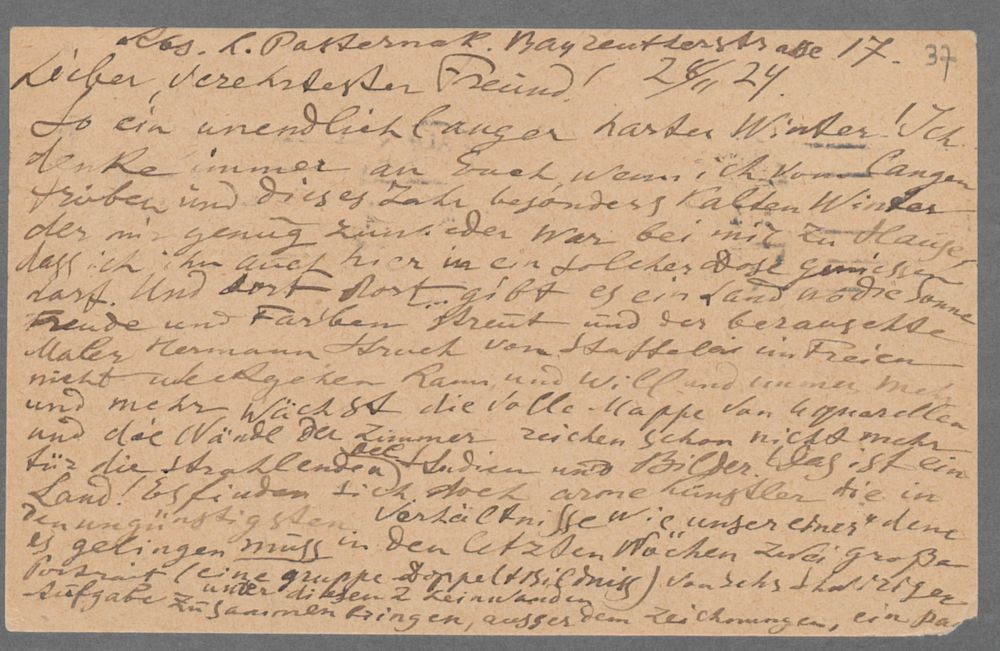 Abs. L. Pasternak. Bayreutherstrasse 17. 37
Lieber, verehrtester Freund! 28/II 24.
So ein unendlich langer harter Winter! Ich
denke immer an Euch wenn ich vom langen
trüben und dieses Jahr besonders kalten Winter
der mir genug zuwider war bei mir zu Hause,
dass ich ihn auch hier in ein solcher Dose geniessen
darf. Und dort dort... gibt es ein Land wo die Sonne
Freude und Farben streut und der berauschte
Maler Hermann Struck von Staffelei im Freien
nicht weckgehen kann, und will und immer mehr
und mehr wächst die volle Mappe von Aquarellen
und die Wände der Zimmer reichen schon nicht mehr
für die strahlenden Studien und Bilder! Das ist ein
Land! Es finden sich doch arme Künstler die in
den ungünstigsten Verhältnisse wie "unser einer" dene
es gelingen muss in den letzten Wochen zwei große
Portrait (eine gruppe-Doppel Bildniss) von sehr
unter diesen 2 Leinwanden
Aufgabe zusammenbringen, ausser dem Zeichnungen, ein